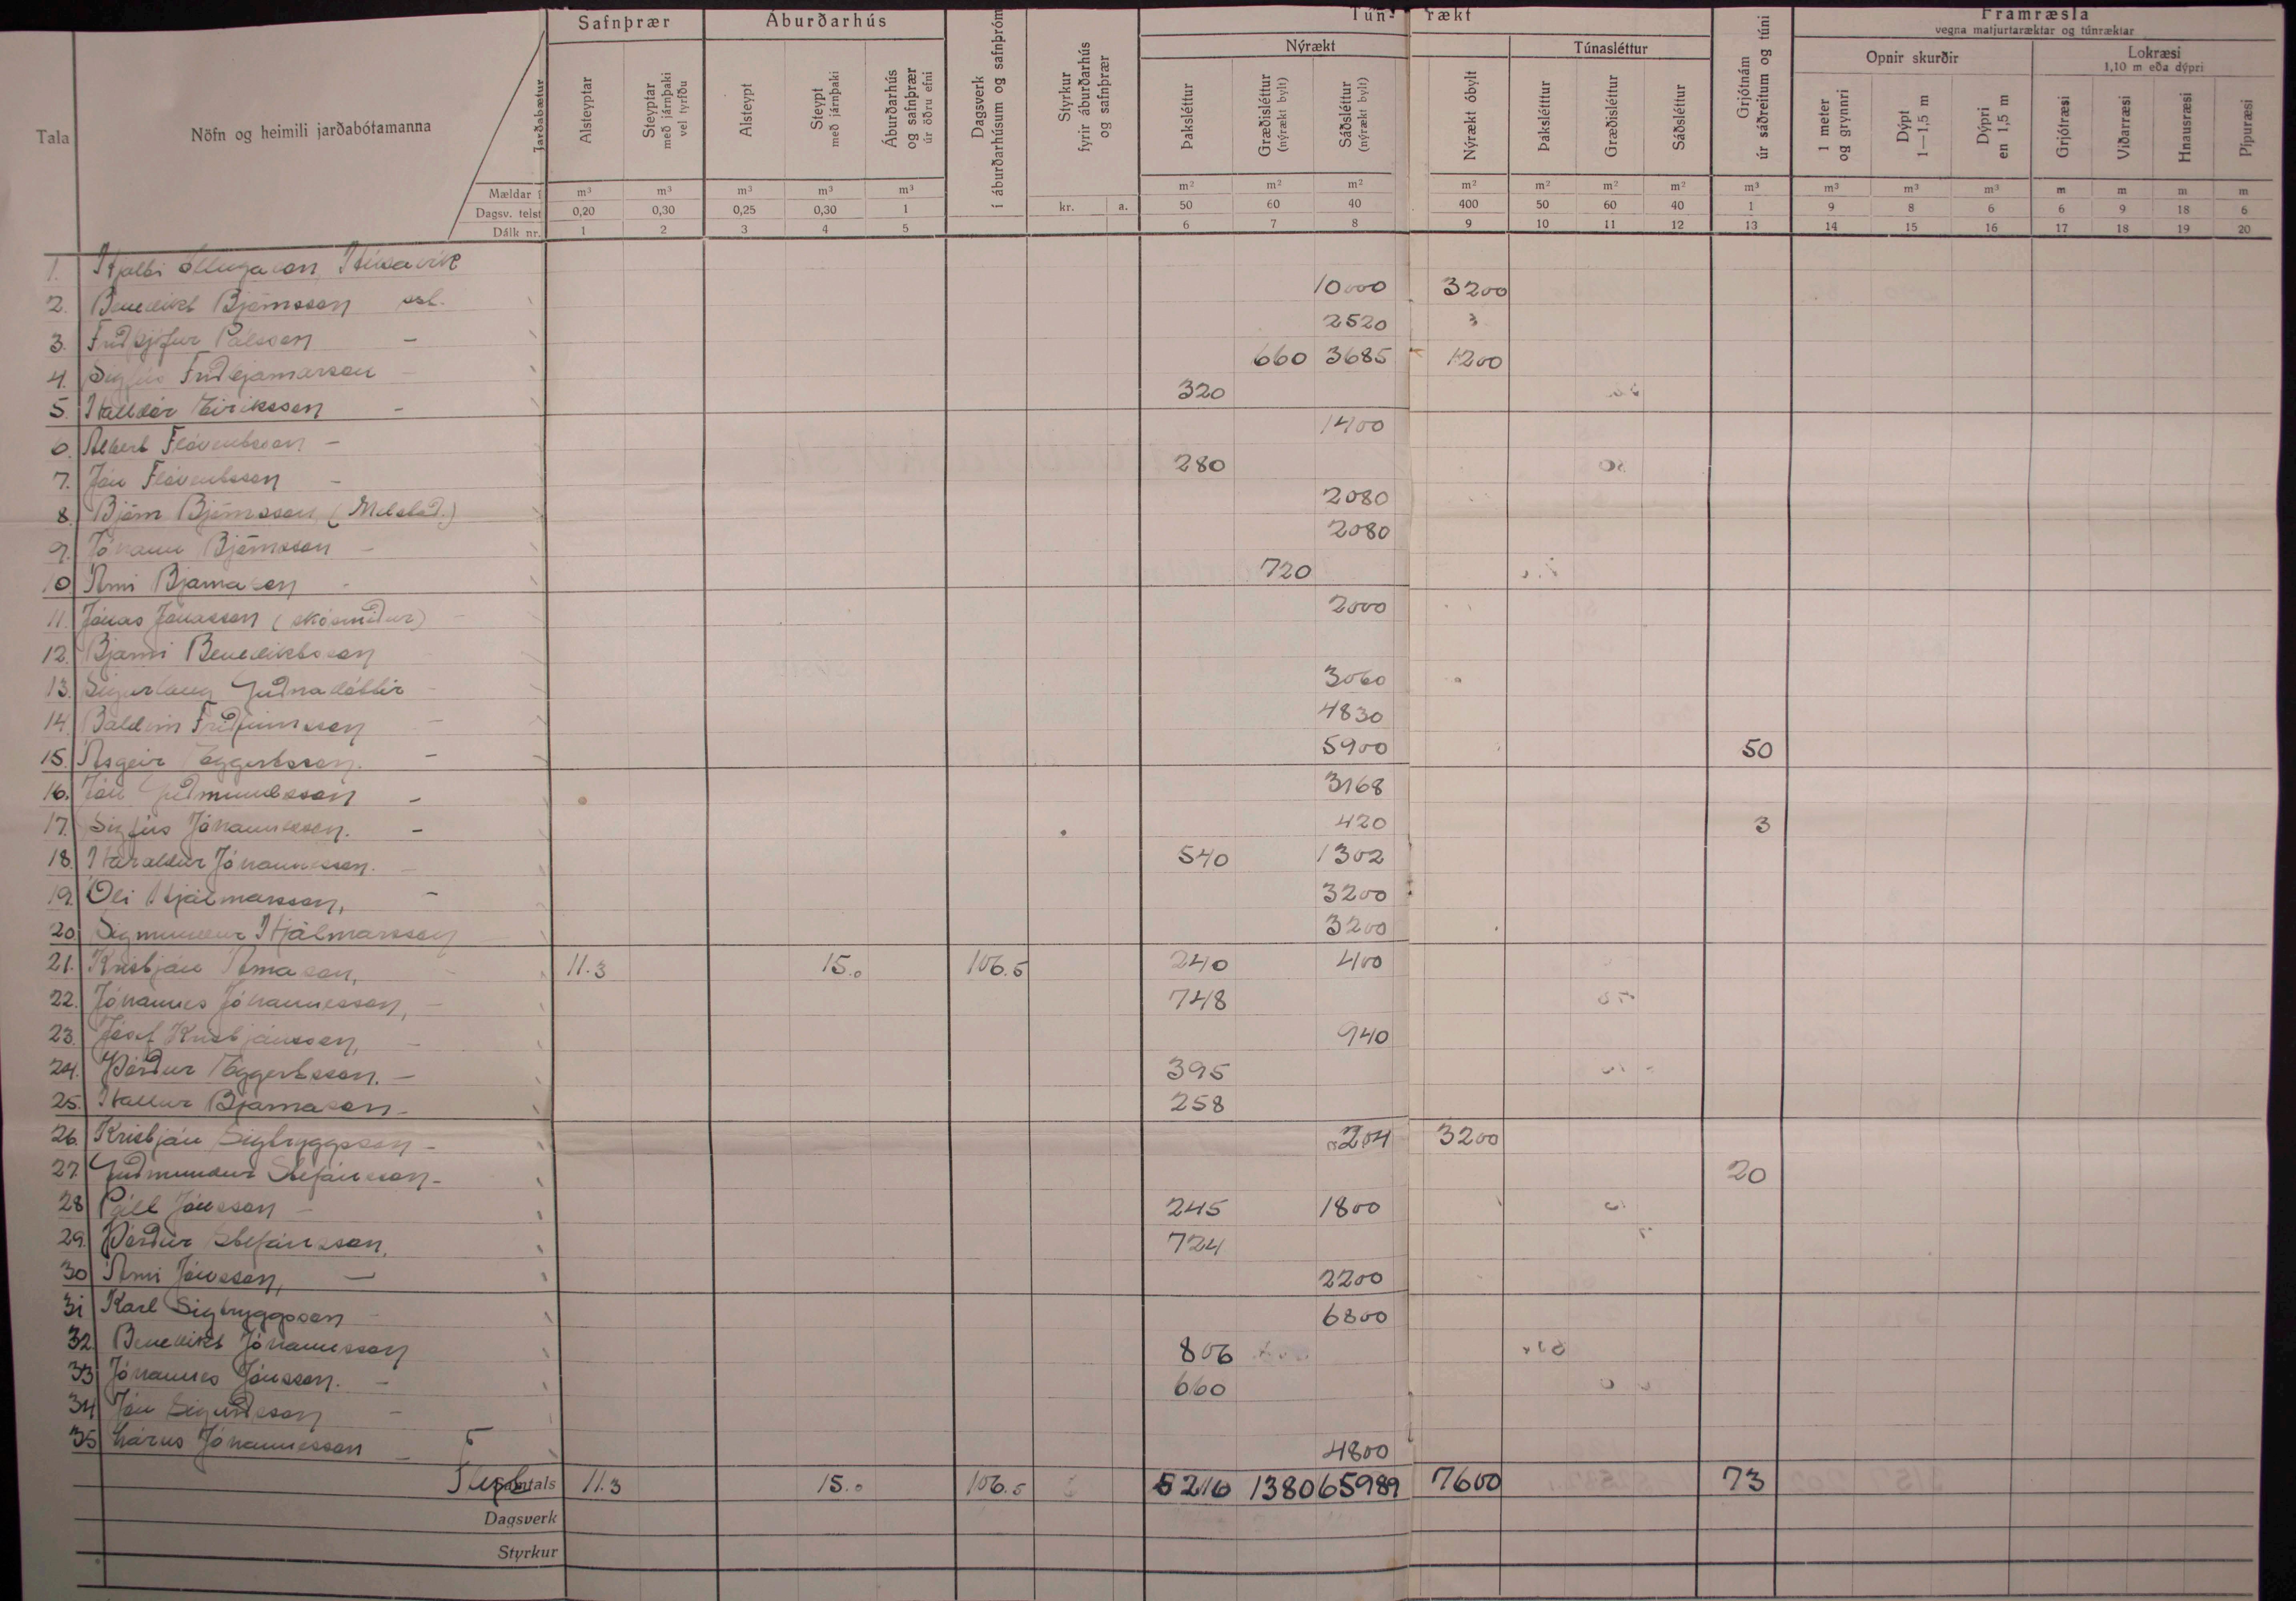 Safnþrær Áburðarhús Tún-rækt Framræsla
vegna matjurtaræktar og túnræktar
Nýrækt Túnasléttur Opnir skurðir Lokræsi
1,10 m eða dýpri
Tala Nöfn og heimili jarðabótamanna Jarðabætur
Alsteyptar
Steyptar með járnþaki vel tyrfðu
Alsteypt
Steypt með járnþaki
Áburðarhús og safnþrær úr öðru efni
Dagsverk í áburðarhúsum og safnþróm
Styrkur fyrir áburðarhús og safnþrær
Þaksléttur
Græðisléttur (nýrækt bylt)
Sáðsléttur (nýrækt bylt)
Nýrækt óbylt
Þaksléttur
Græðisléttur
Sáðsléttur
Grjótnám úr sáðreitum og túni
1 meter og grynnri
Dýpt 1—1,5 m
Dýpri en 1,5 m
Grjótræsi
Viðarræsi
Hnausræsi
Pípuræsi
Mældar í m³ m³ m³ m³ m³ m² m² m² m² m² m² m² m³ m³ m³ m³ m m m m
Dagsv. telst 0,20 0,30 0,25 0,30 1 kr. a. 50 60 40 400 50 60 40 1 9 8 6 6 9 18 6
Dálk nr. 1 2 3 4 5 6 7 8 9 10 11 12 13 14 15 16 17 18 19 20
1. Hjalti Illugason Húsavík
2. Benedikt Björnsson sst. 10000 3200
3. Friðþjófur Pálsson – 2520
4. Sigfús Friðbjarnarson – 660 3685 1200
5. Halldór Eiríksson – 320
6. Albert Flóventsson – 1400
7. Jón Flóventsson – 280
8. Björn Björnsson (Melstað.) 2080
9. Jóhann Björnsson – 2080
10 Árni Bjarnason - 720
11. Jónas Jónasson (skósmiður) – 2000
12. Bjarni Benediktsson
13. Sigurlaug Guðnadóttir – 3060
14. Baldvin Friðfinnsson – 4830
15. Ásgeir Eggertsson. – 5900 50
16. Jón Guðmundsson – 3168
17. Sigfús Jóhannesson. – 420 3
18. Haraldur Jóhannesson. – 540 1302
19. Óli Hjálmarsson, – 3200
20. Sigmundur Hjálmarsson 3200
21. Kristján Árnason, – 11.3 15.0 106.5 240 400
22. Jóhannes Jóhannesson, – 748
23. Jósef Kristjánsson, – 940
24. Þórður Eggertsson. – 395
25. Hallur Bjarnason – 258
26. Kristján Sigtryggsson – 204 3200
27. Guðmundur Stefánsson – 20
28 Páll Jónsson – 245 1800
29. Þórður Stefánsson, 724
30 Árni Jónsson, – 2200
31 Karl Sigtryggsson – 6800
32. Benedikt Jóhannesson 806
33 Jóhannes Jónsson. – 660
34 Jón Sigurðsson –
35 Lárus Jóhannesson – 4800
Samtals 11.3 15.0 106.5 5216 1380 65989 7600 73
Dagsverk
Styrkur